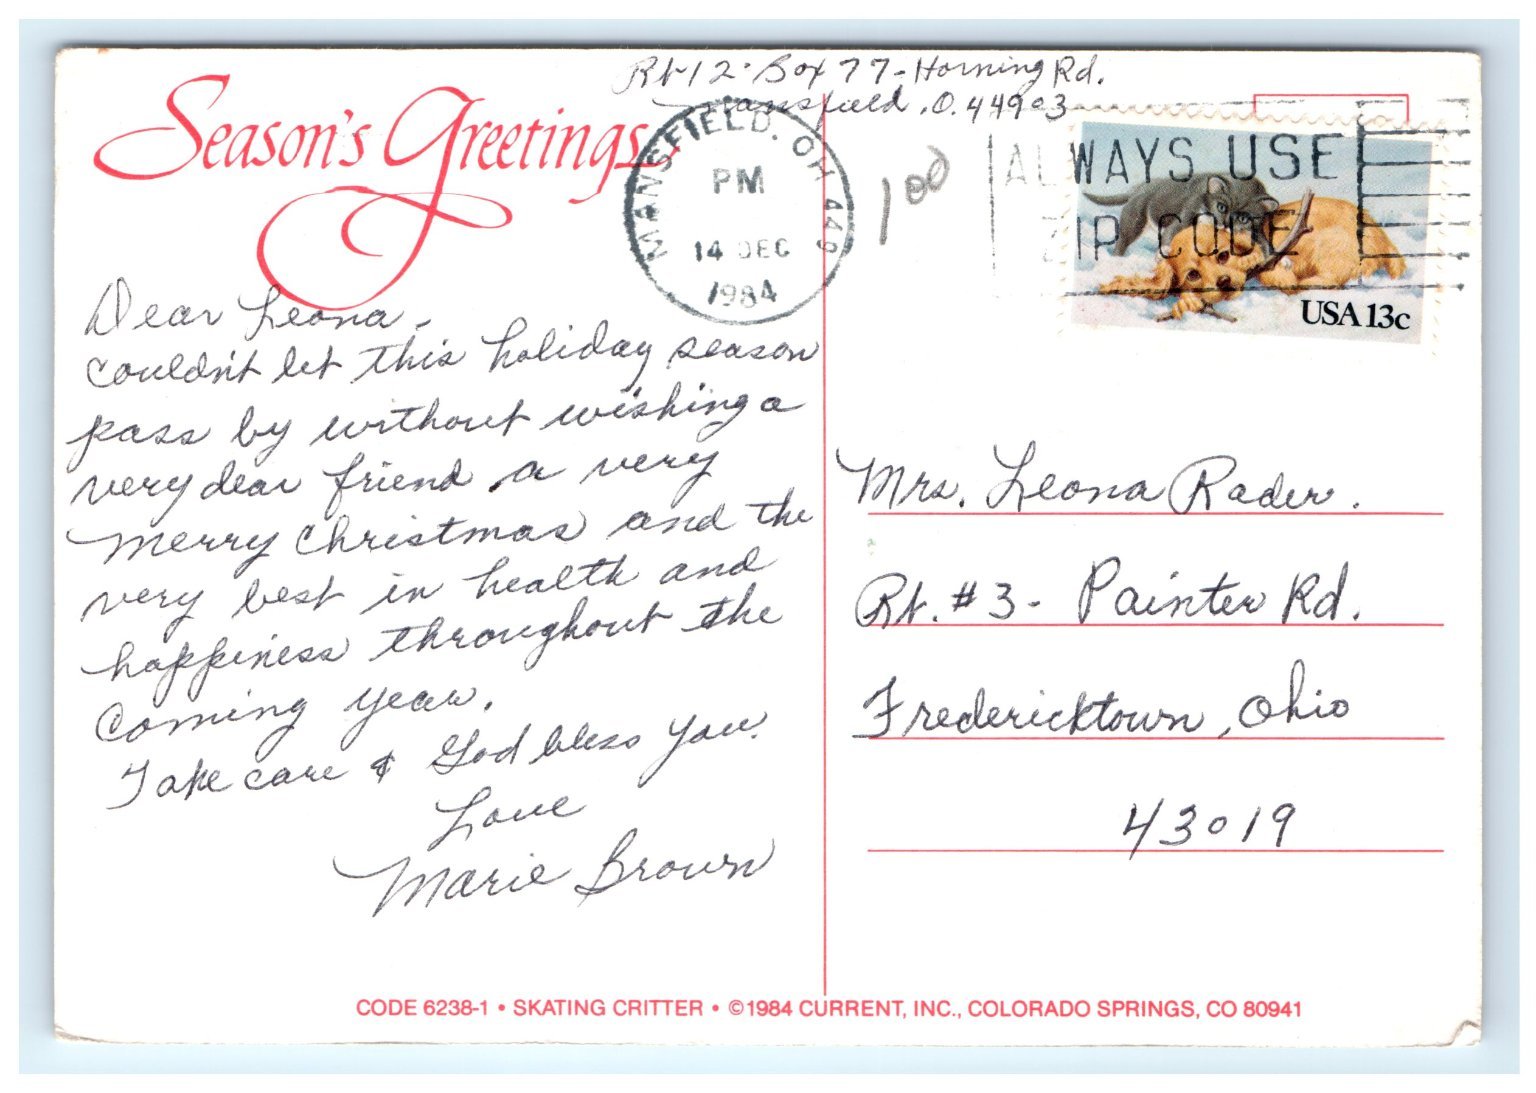 Season's Greetings
Rt 12 - Box 77 - Horning Rd.
Mansfield, O. 44903
MANSFIELD, OH 449
PM
14 DEC
1984
100
ALWAYS USE
ZIP CODE
USA 13c
Dear Leona -
couldn't let this holiday season
pass by without wishing a
very dear friend a very
Merry Christmas and the
very best in health and
happiness throughout the
coming year.
Take care & God bless you.
Love
Marie Brown
Mrs. Leona Rader.
Rt. #3 - Painter Rd.
Fredericktown, Ohio
43019
CODE 6238-1 • SKATING CRITTER • ©1984 CURRENT, INC., COLORADO SPRINGS, CO 80941